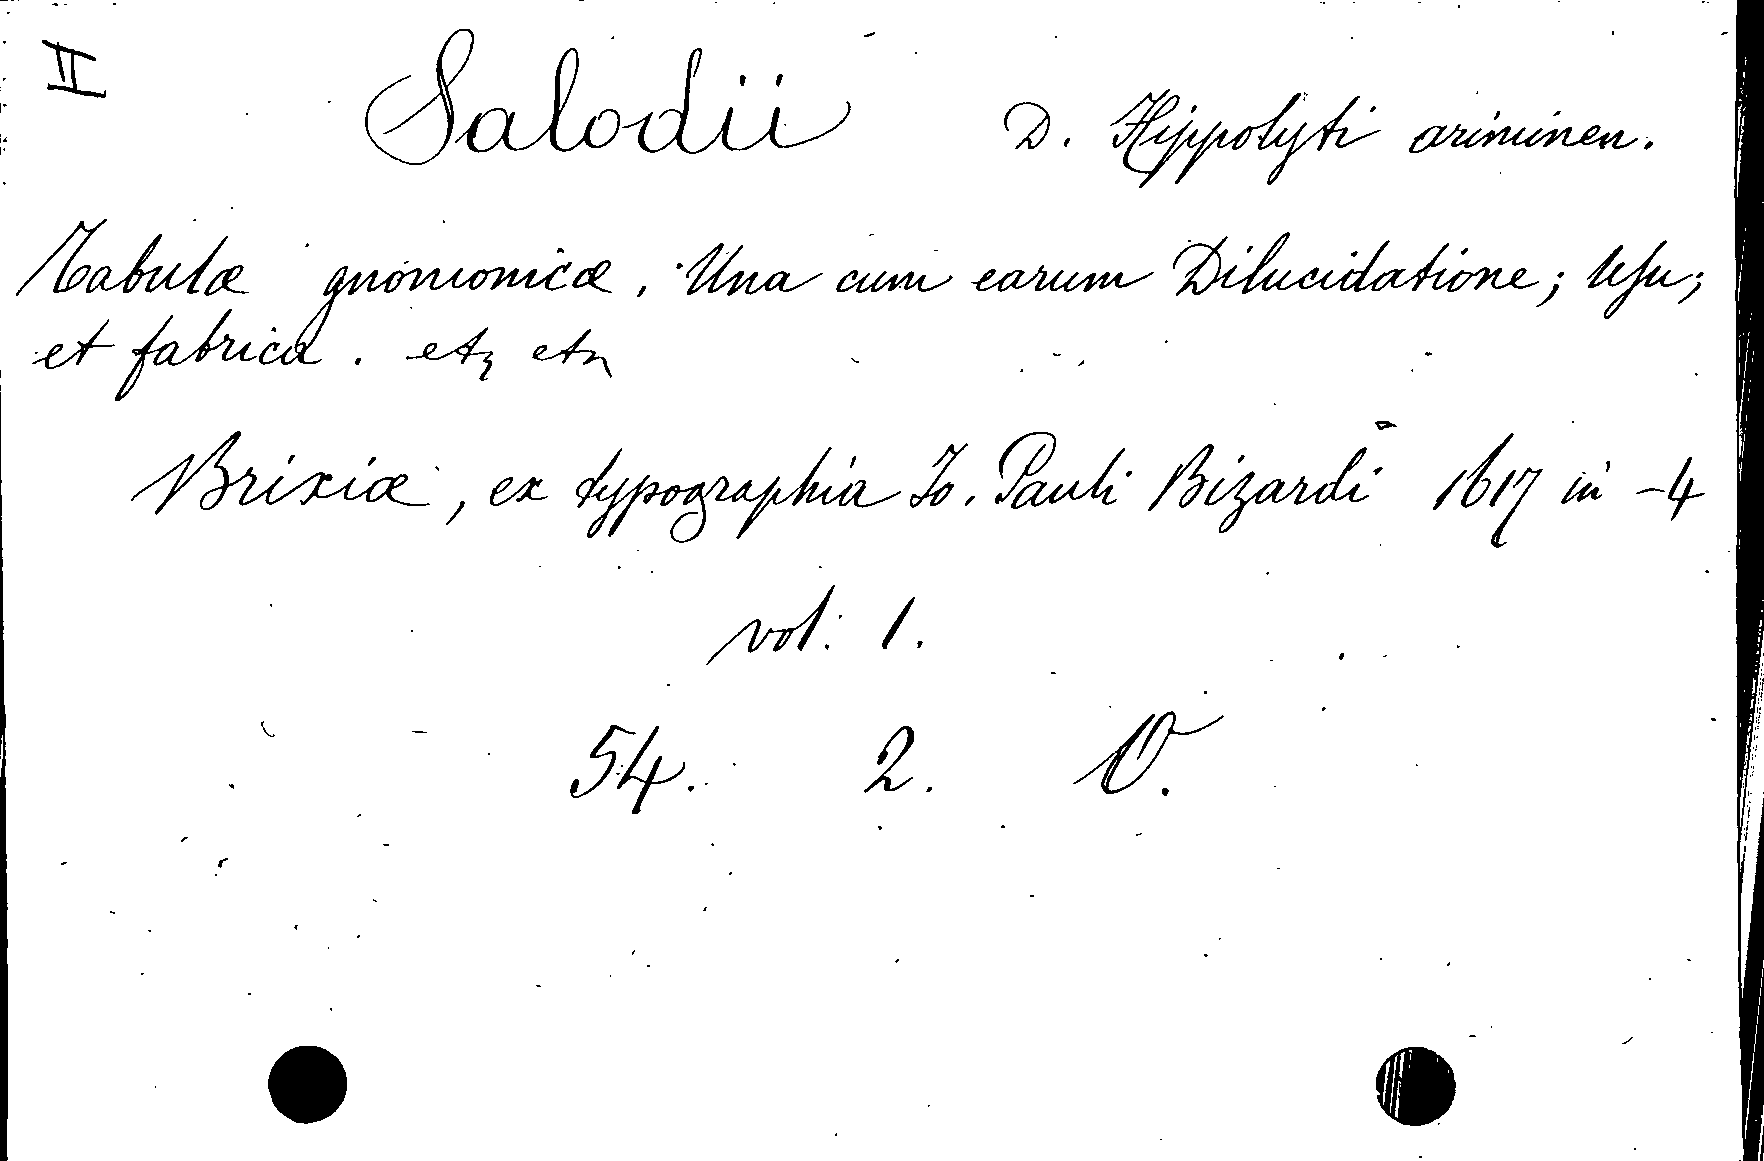 II Salodii D. Hippolyti ariminen.
Tabulæ gnomonicæ. Una cum earum Dilucidatione; Usu;
et fabrica. etc etc
Brixiæ, ex typographia Jo. Pauli Bizardi 1617 in-4
vol: 1.
54. 2. O.